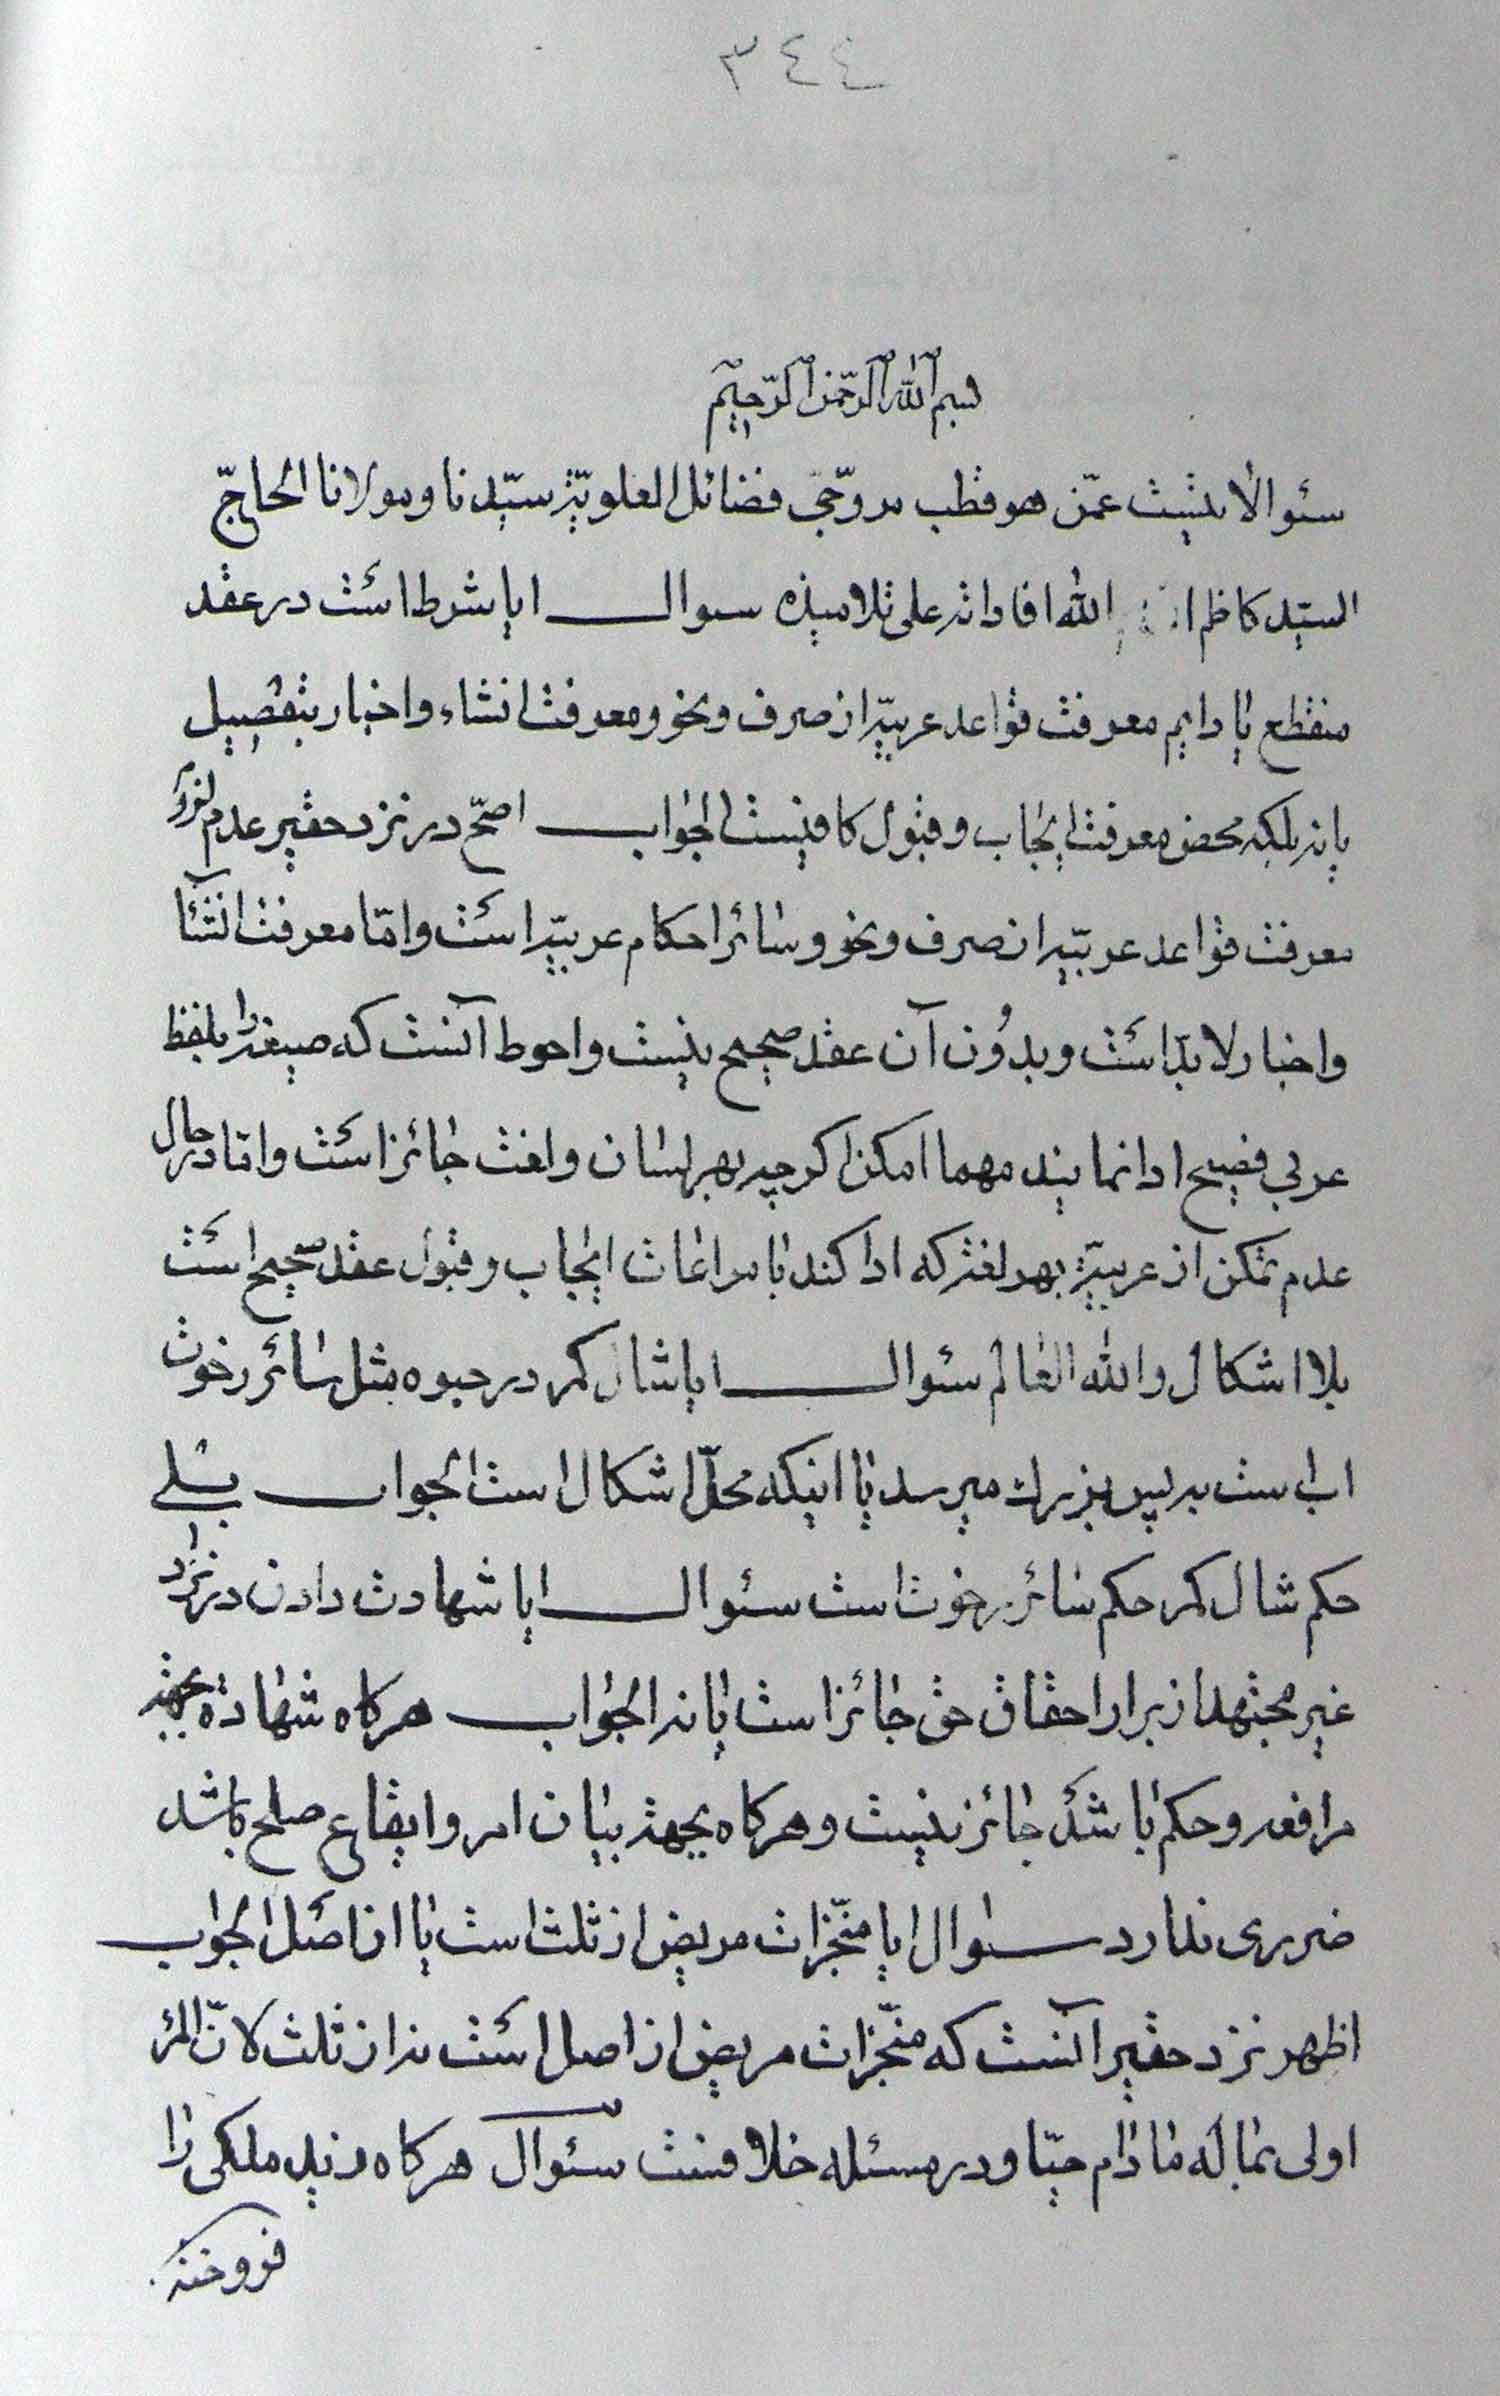 ٣٤٤
بسم الله الرحمن الرحیم
سئوالا تیست عمّن هو قطب مروّجی فضائل العلویّة سیّدنا ومولانا الحاجّ
السیّد کاظم الله افاداته علی تلامیذه سوال ایا شرط است در عقد
منقطع یا دایم معرفت قواعد عربیّه از صرف ونحو ومعرفت انشاء واخبار بتفصیل
یا نه بلکه محض معرفت ایجاب وقبول کافیست الجواب اصحّ در نزد حقیر عدم لزوم
معرفت قواعد عربیّه از صرف ونحو وسائر احکام عربیّه است وامّا معرفت انشآء
واخبار لا بدّ است وبدُون آن عقد صحیح نیست واحوط آنست که صیغه را بلفظ
عربی فصیح ادا نمایند مهما امکن اکرچه بهر لسان ولغت جائز است وامّا در حال
عدم تمکن از عربیّة بهر لغتی که ادا کند با مراعات ایجاب وقبول عقد صحیح است
بلا اشکال والله العالم سئوال ایا شال کمر در حبوه مثل سائر رخوت
است به پسر بزرك میرسد یا اینکه محلّ اشکال است الجواب بلی
حکم شال کمر حکم سائر رخوت است سئوال ایا شهادت دادن در نزد
غیر مجتهد از برا احقاق حق جائز است یا نه الجواب هرکاه شهادة بجهة
مرافعه وحکم باشد جائز نیست وهرکاه بجهة بیان امر وایقاع صلح باشد
ضرری ندارد سئوال ایا منجّزات مریض از ثلث است یا از اصل الجواب
اظهر نزد حقیر آنست که منجّزات مریض از اصل است نه از ثلث لانّ المرء
اولی بماله مادام حیّا ودر مسئله خلافست سئوال هرکاه زید ملکی را
فروخته